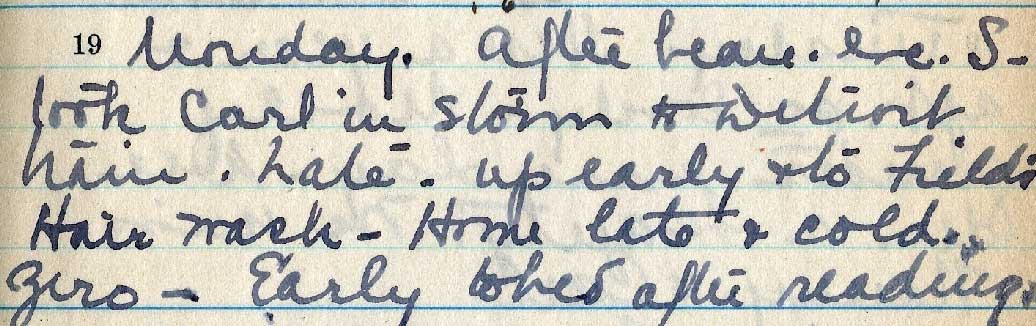 19 Monday. After
took Carl in storm to Detroit
train. Late. up early & to Fields
Hair wash - Home late & cold.
Zero - Early to bed after reading.